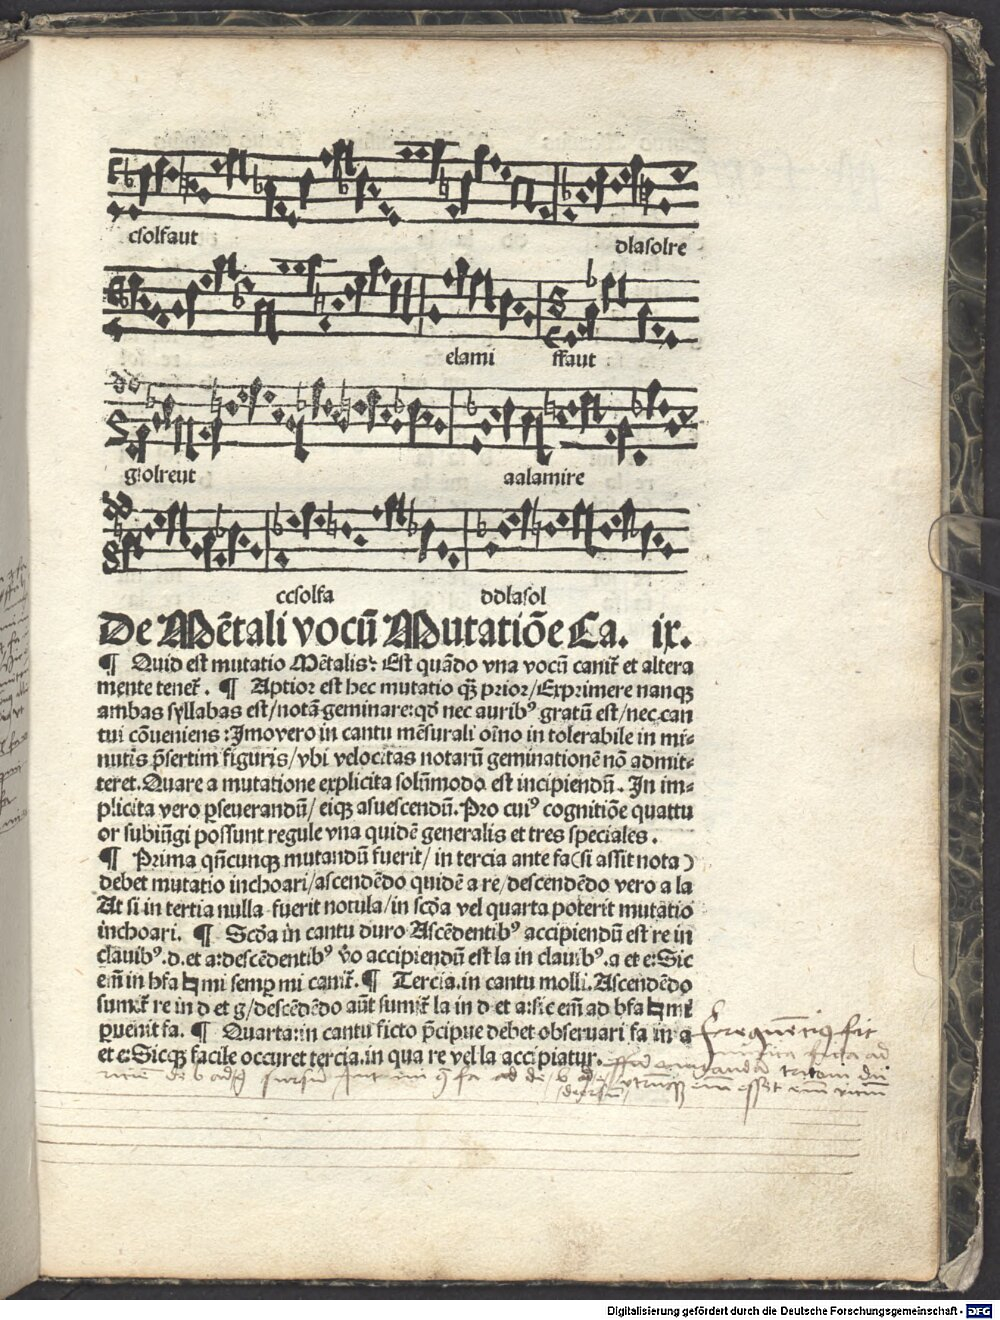 csolfaut dlasolre
elami ffaut
gsolreut aalamire
ccsolfa ddlasol
De Mētali vocū Mutatiōe Ca. ix.
¶ Quid est mutatio Mētalis: Est quādo vna vocū canit᷑ et altera
mente tenet᷑. ¶ Aptior est hec mutatio qȝ̄ prior/Exprimere nanqȝ
ambas syllabas est/notā geminare: qd̄ nec auribꝰ gratū est/nec can
tui cōueniens: Imo vero in cantu mēsurali oīno in tolerabile in mi⸗
nutis p̄sertim figuris/vbi velocitas notarū geminationē nō admit⸗
teret. Quare a mutatione explicita solūmodo est incipiendū. In im⸗
plicita vero ꝑseuerandū/eiqȝ asuescendū. Pro cuiꝰ cognitiōe quattu
or subiūgi possunt regule vna quidē generalis et tres speciales.
¶ Prima qn̄cunqȝ mutandū fuerit/ in tercia ante fa (si assit nota)
debet mutatio inchoari/ascendēdo quidē a re/descendēdo vero a la
At si in tertia nulla fuerit notula/in scd̄a vel quarta poterit mutatio
inchoari. ¶ Scd̄a in cantu duro Ascēdentibꝰ accipiendū est re in
clauibꝰ .d. et a: descēdentibꝰ v̄o accipiendū est la in clauibꝰ .a et e: Sic
em̄ in bfa♮mi semꝑ mi canit᷑. ¶ Tercia. in cantu molli. Ascendēdo
sumit᷑ re in d et g/descendēdo aūt sumit᷑ la in d et a: sic em̄ ad bfa♮mi
ꝑuenit fa. ¶ Quarta: in cantu ficto p̄cipue debet obseruari fa in a
et e: Sicqȝ facile occuret tercia. in qua re vel la accipiatur.
Digitalisierung gefördert durch die Deutsche Forschungsgemeinschaft - DFG